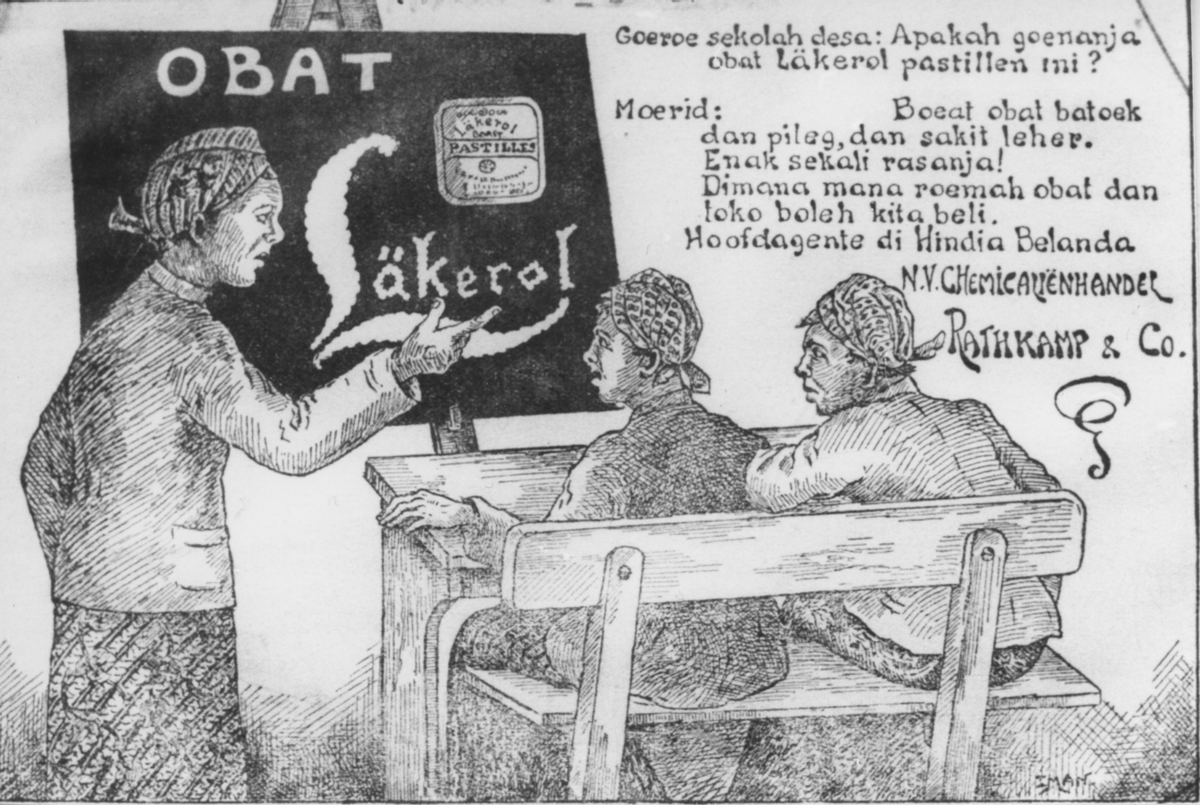 OBAT
Läkerol
PASTILLES
Läkerol
Goeroe sekolah desa: Apakah goenanja
obat Läkerol pastillen ini?
Moerid: Boeat obat batoek
dan pileg, dan sakit leher.
Enak sekali rasanja!
Dimana mana roemah obat dan
toko boleh kita beli.
Hoofdagente di Hindia Belanda
N.V. CHEMICALIËNHANDEL
RATHKAMP & Co.
IMAN